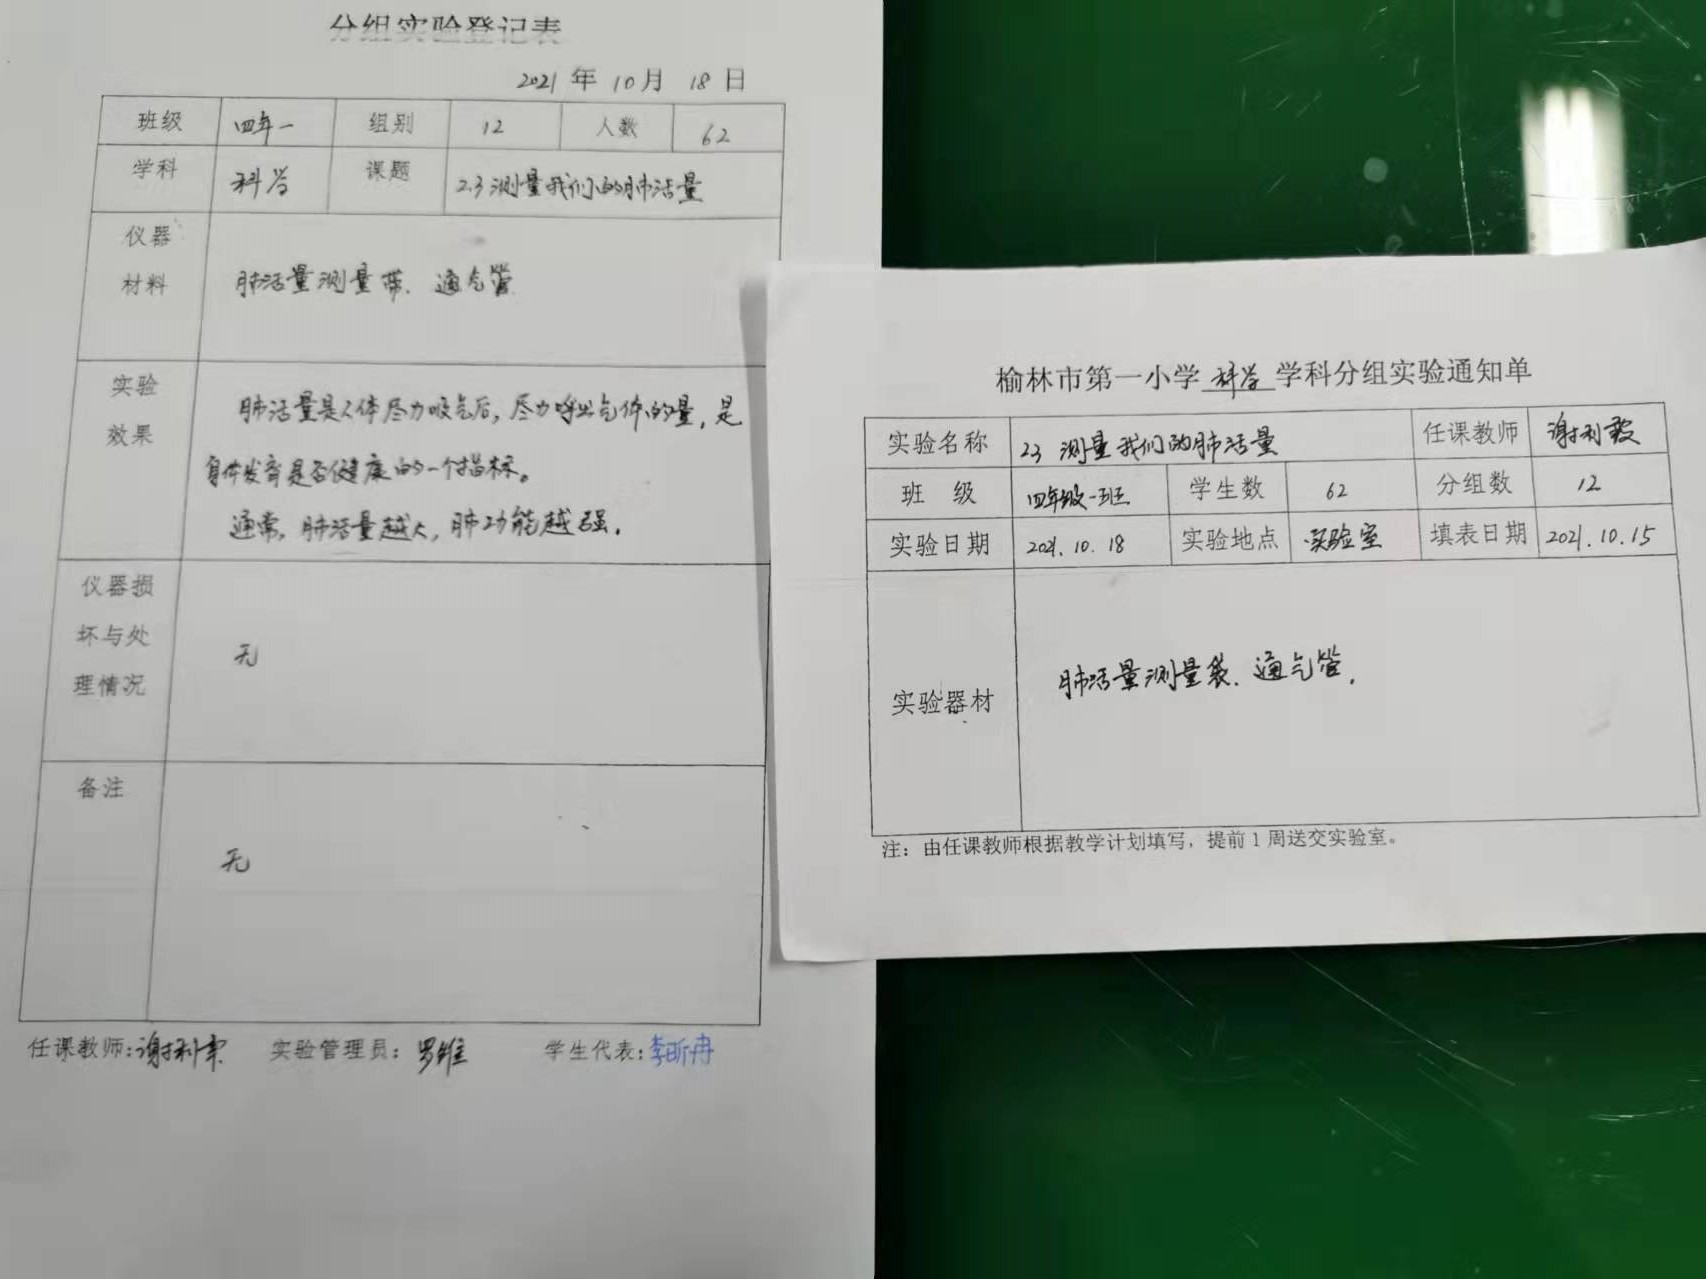 分组实验登记表
2021 年 10 月 18 日
班级 四年一 组别 12 人数 62
学科 科学 课题 2.3 测量我们的肺活量
仪器
材料
肺活量测量带、通气管
实验
效果
肺活量是人体尽力吸气后，尽力呼出气体的量，是
身体发育是否健康的一个指标。
通常，肺活量越大，肺功能越强。
仪器损
坏与处
理情况
无
备注
无
任课教师: 实验管理员：罗维 学生代表:李昕冉
榆林市第一小学 科学 学科分组实验通知单
实验名称 2.3 测量我们的肺活量 任课教师
班 级 四年级一班 学生数 62 分组数 12
实验日期 2021.10.18 实验地点 实验室 填表日期 2021.10.15
实验器材 肺活量测量袋、通气管.
注：由任课教师根据教学计划填写，提前 1 周送交实验室。